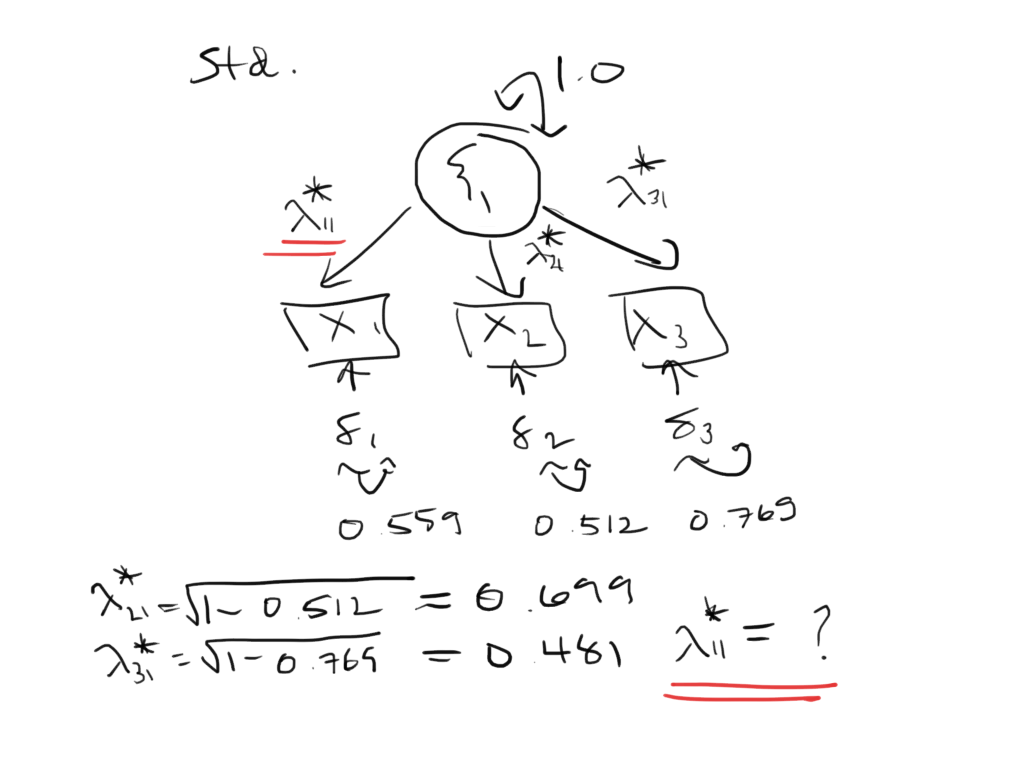 Std.
1.0
ξ1
λ*11
λ*21
λ*31
X1
X2
X3
δ1
δ2
δ3
0.559
0.512
0.769
λ*21 = √1- 0.512 = 0.699
λ*31 = √1- 0.769 = 0.481
λ*11 = ?